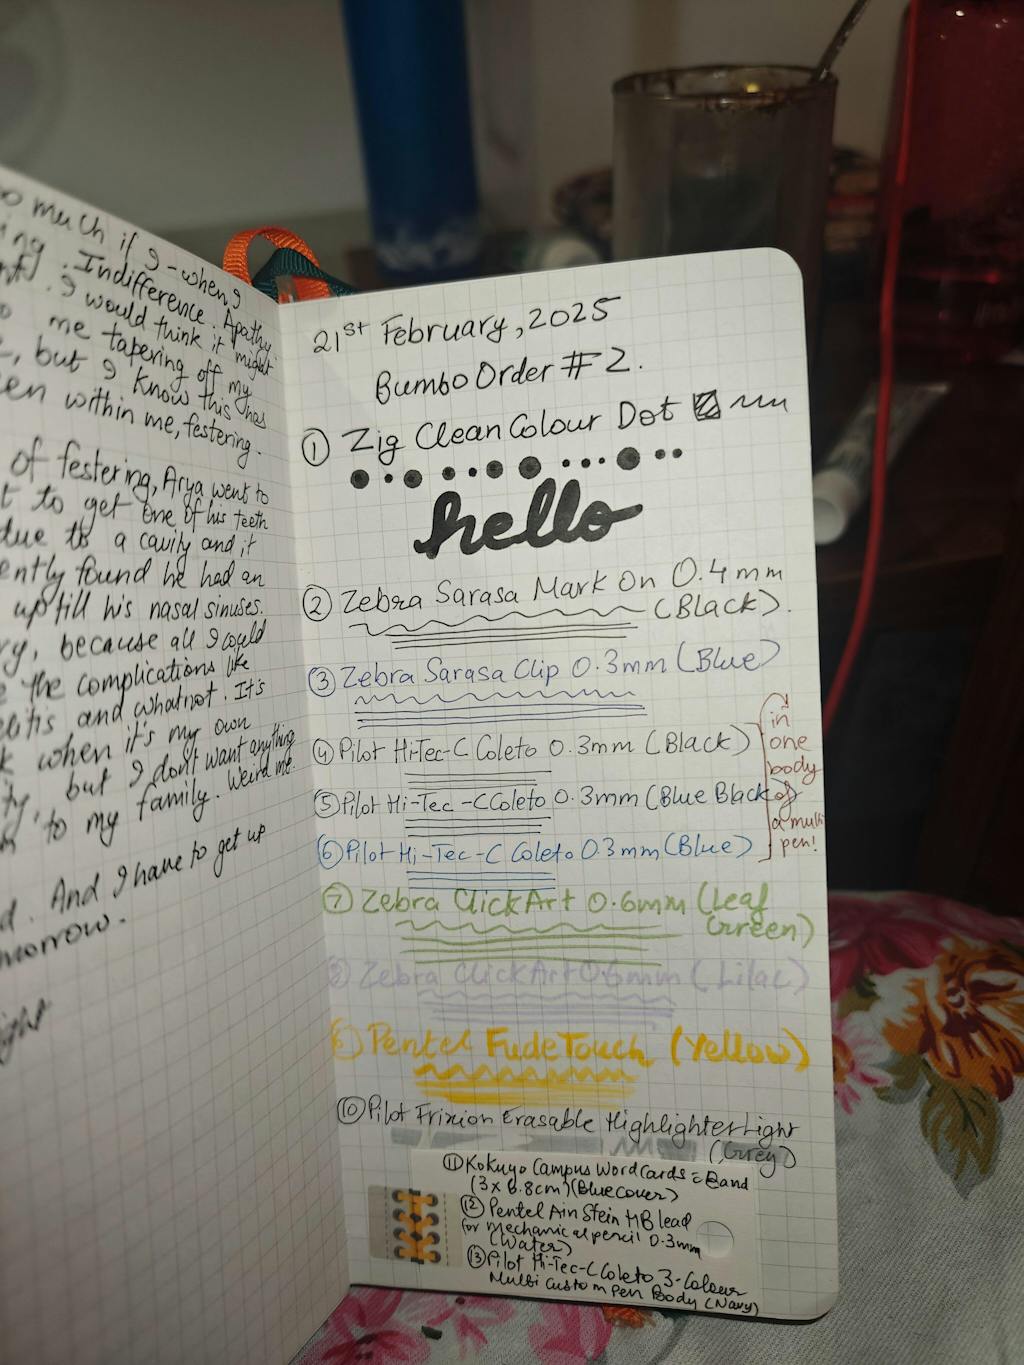 o much if I - when I
ing. Indifference. Apathy.
I would think it might
me tapering off my
but I know this has
een within me, festering.
of festering, Arya went to
t to get one of his teeth
due to a cavity and it
ently found he had an
up till his nasal sinuses.
ry, because all I could
the complications like
elitis and whatnot. It's
k when it's my own
ty, but I don't want anything
to my family. Weird me.
d. And I have to get up
morrow.
ight
21st February, 2025
Bumbo Order # 2.
① Zig Clean Colour Dot
hello
② Zebra Sarasa Mark On 0.4 mm
(Black).
③ Zebra Sarasa Clip 0.3mm (Blue)
④ Pilot Hi-Tec-C Coleto 0.3mm (Black)
⑤ Pilot Hi-Tec-C Coleto 0.3mm (Blue Black)
⑥ Pilot Hi-Tec-C Coleto 0.3mm (Blue)
in
one
body
of
a multi
pen!
⑦ Zebra ClickArt 0.6mm (Leaf
Green)
⑧ Zebra ClickArt 0.6mm (Lilac)
Pentel Fude Touch (Yellow)
⑩ Pilot Frixion Erasable Highlighter Light
(Grey)
⑪ Kokuyo Campus Word Cards = Band
(3 x 6.8cm) (Blue Cover)
⑫ Pentel Ain Stein HB lead
for mechanical pencil 0.3mm
(Water)
⑬ Pilot Hi-Tec-C Coleto 3-Colour
Multi Custom Pen Body (Navy)